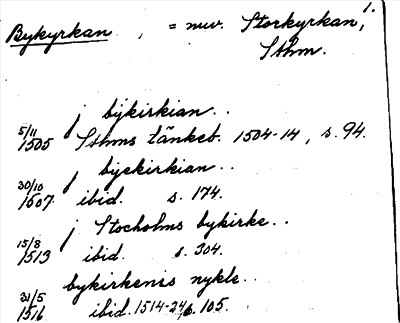 1.
Bykyrkan, = nuv. Storkyrkan,
Sthm.
j bÿkirkian..
5/11 1505 Sthms tänkeb. 1504-14, s. 94.
j byekirkian..
30/10 1507 ibid. s. 174.
j Stocholms bykirke..
15/8 1513 ibid. s. 304.
bykirkenes nykle..
31/5 1516 ibid. 1514-24, s. 105.